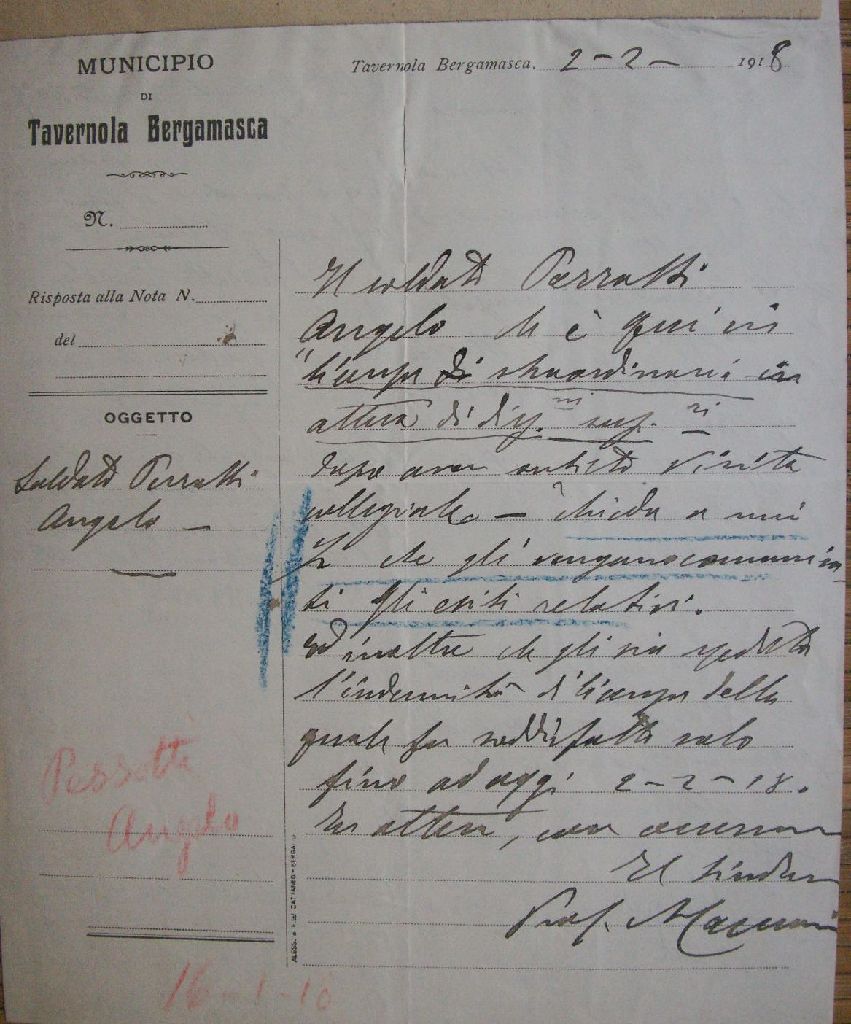 MUNICIPIO
DI
Tavernola Bergamasca
N.
Risposta alla Nota N.
del
OGGETTO
Soldato
Angelo
Tavernola Bergamasca, 2-2- 1918
Il soldato
Angelo che è qui in
"licenza di straordinaria in
attesa di disp.ni sup.ri
dopo aver subito visita
collegiale - chiede a
che gli vengano comunica
ti gli esiti relativi.
Ed inoltre che gli sia spedita
l'indennità di licenza della
quale fu soddisfatto solo
fino ad oggi 2-2-18.
In attesa, con
Il Sindaco
Prof.
Angelo